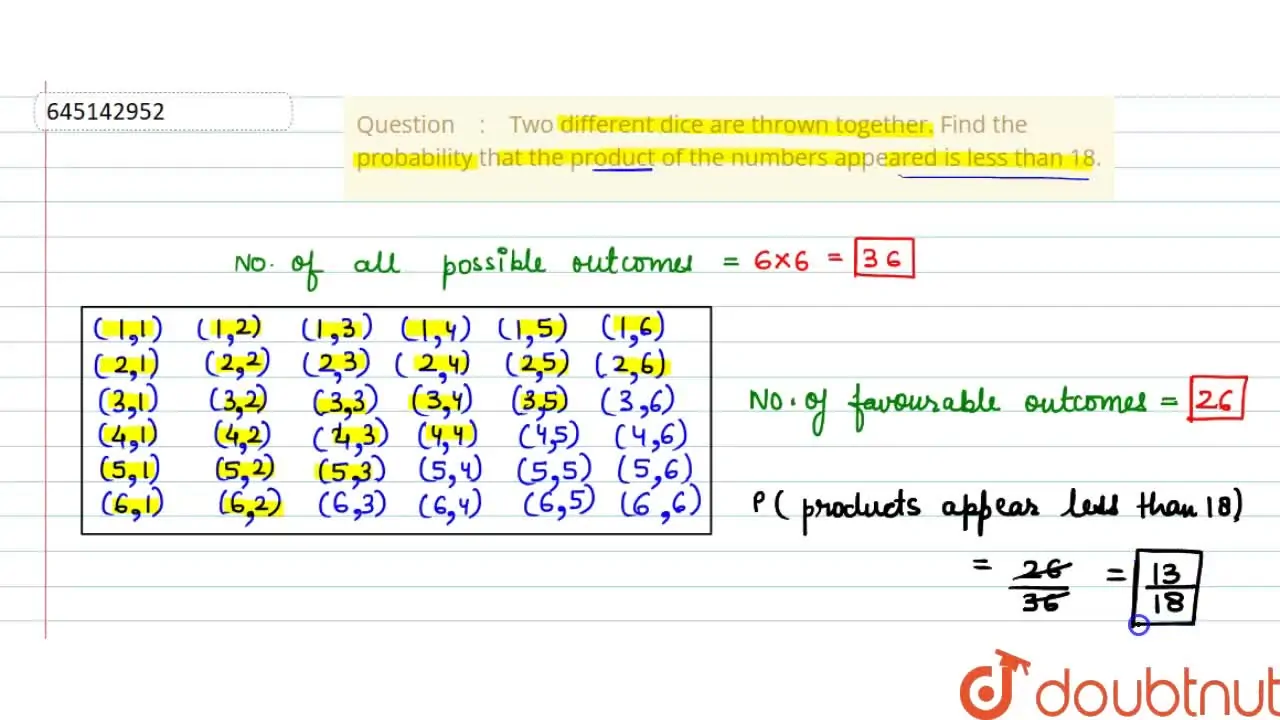 645142952
Question : Two different dice are thrown together. Find the
probability that the product of the numbers appeared is less than 18.
No. of all possible outcomes = 6×6 = 36
(1,1) (1,2) (1,3) (1,4) (1,5) (1,6)
(2,1) (2,2) (2,3) (2,4) (2,5) (2,6)
(3,1) (3,2) (3,3) (3,4) (3,5) (3,6)
(4,1) (4,2) (4,3) (4,4) (4,5) (4,6)
(5,1) (5,2) (5,3) (5,4) (5,5) (5,6)
(6,1) (6,2) (6,3) (6,4) (6,5) (6,6)
No. of favourable outcomes = 26
P( products appear less than 18)
= 26/36 = 13/18
doubtnut